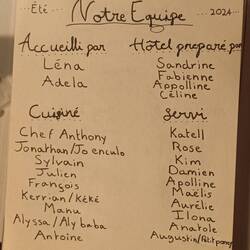 Été 2024
Notre Equipe
Accueilli par
Léna
Adela
Hôtel preparé par
Sandrine
Fabienne
Appolline
Céline
Cuisiné
Chef Anthony
Jonathan/Jo enculo
Sylvain
Julien
François
Kerrian/Kéké
Manu
Alyssa/Aly baba
Antoine
Servi
Katell
Rose
Kim
Damien
Apolline
Maëlis
Aurélie
Ilona
Anatole
Augustin/Petit poney